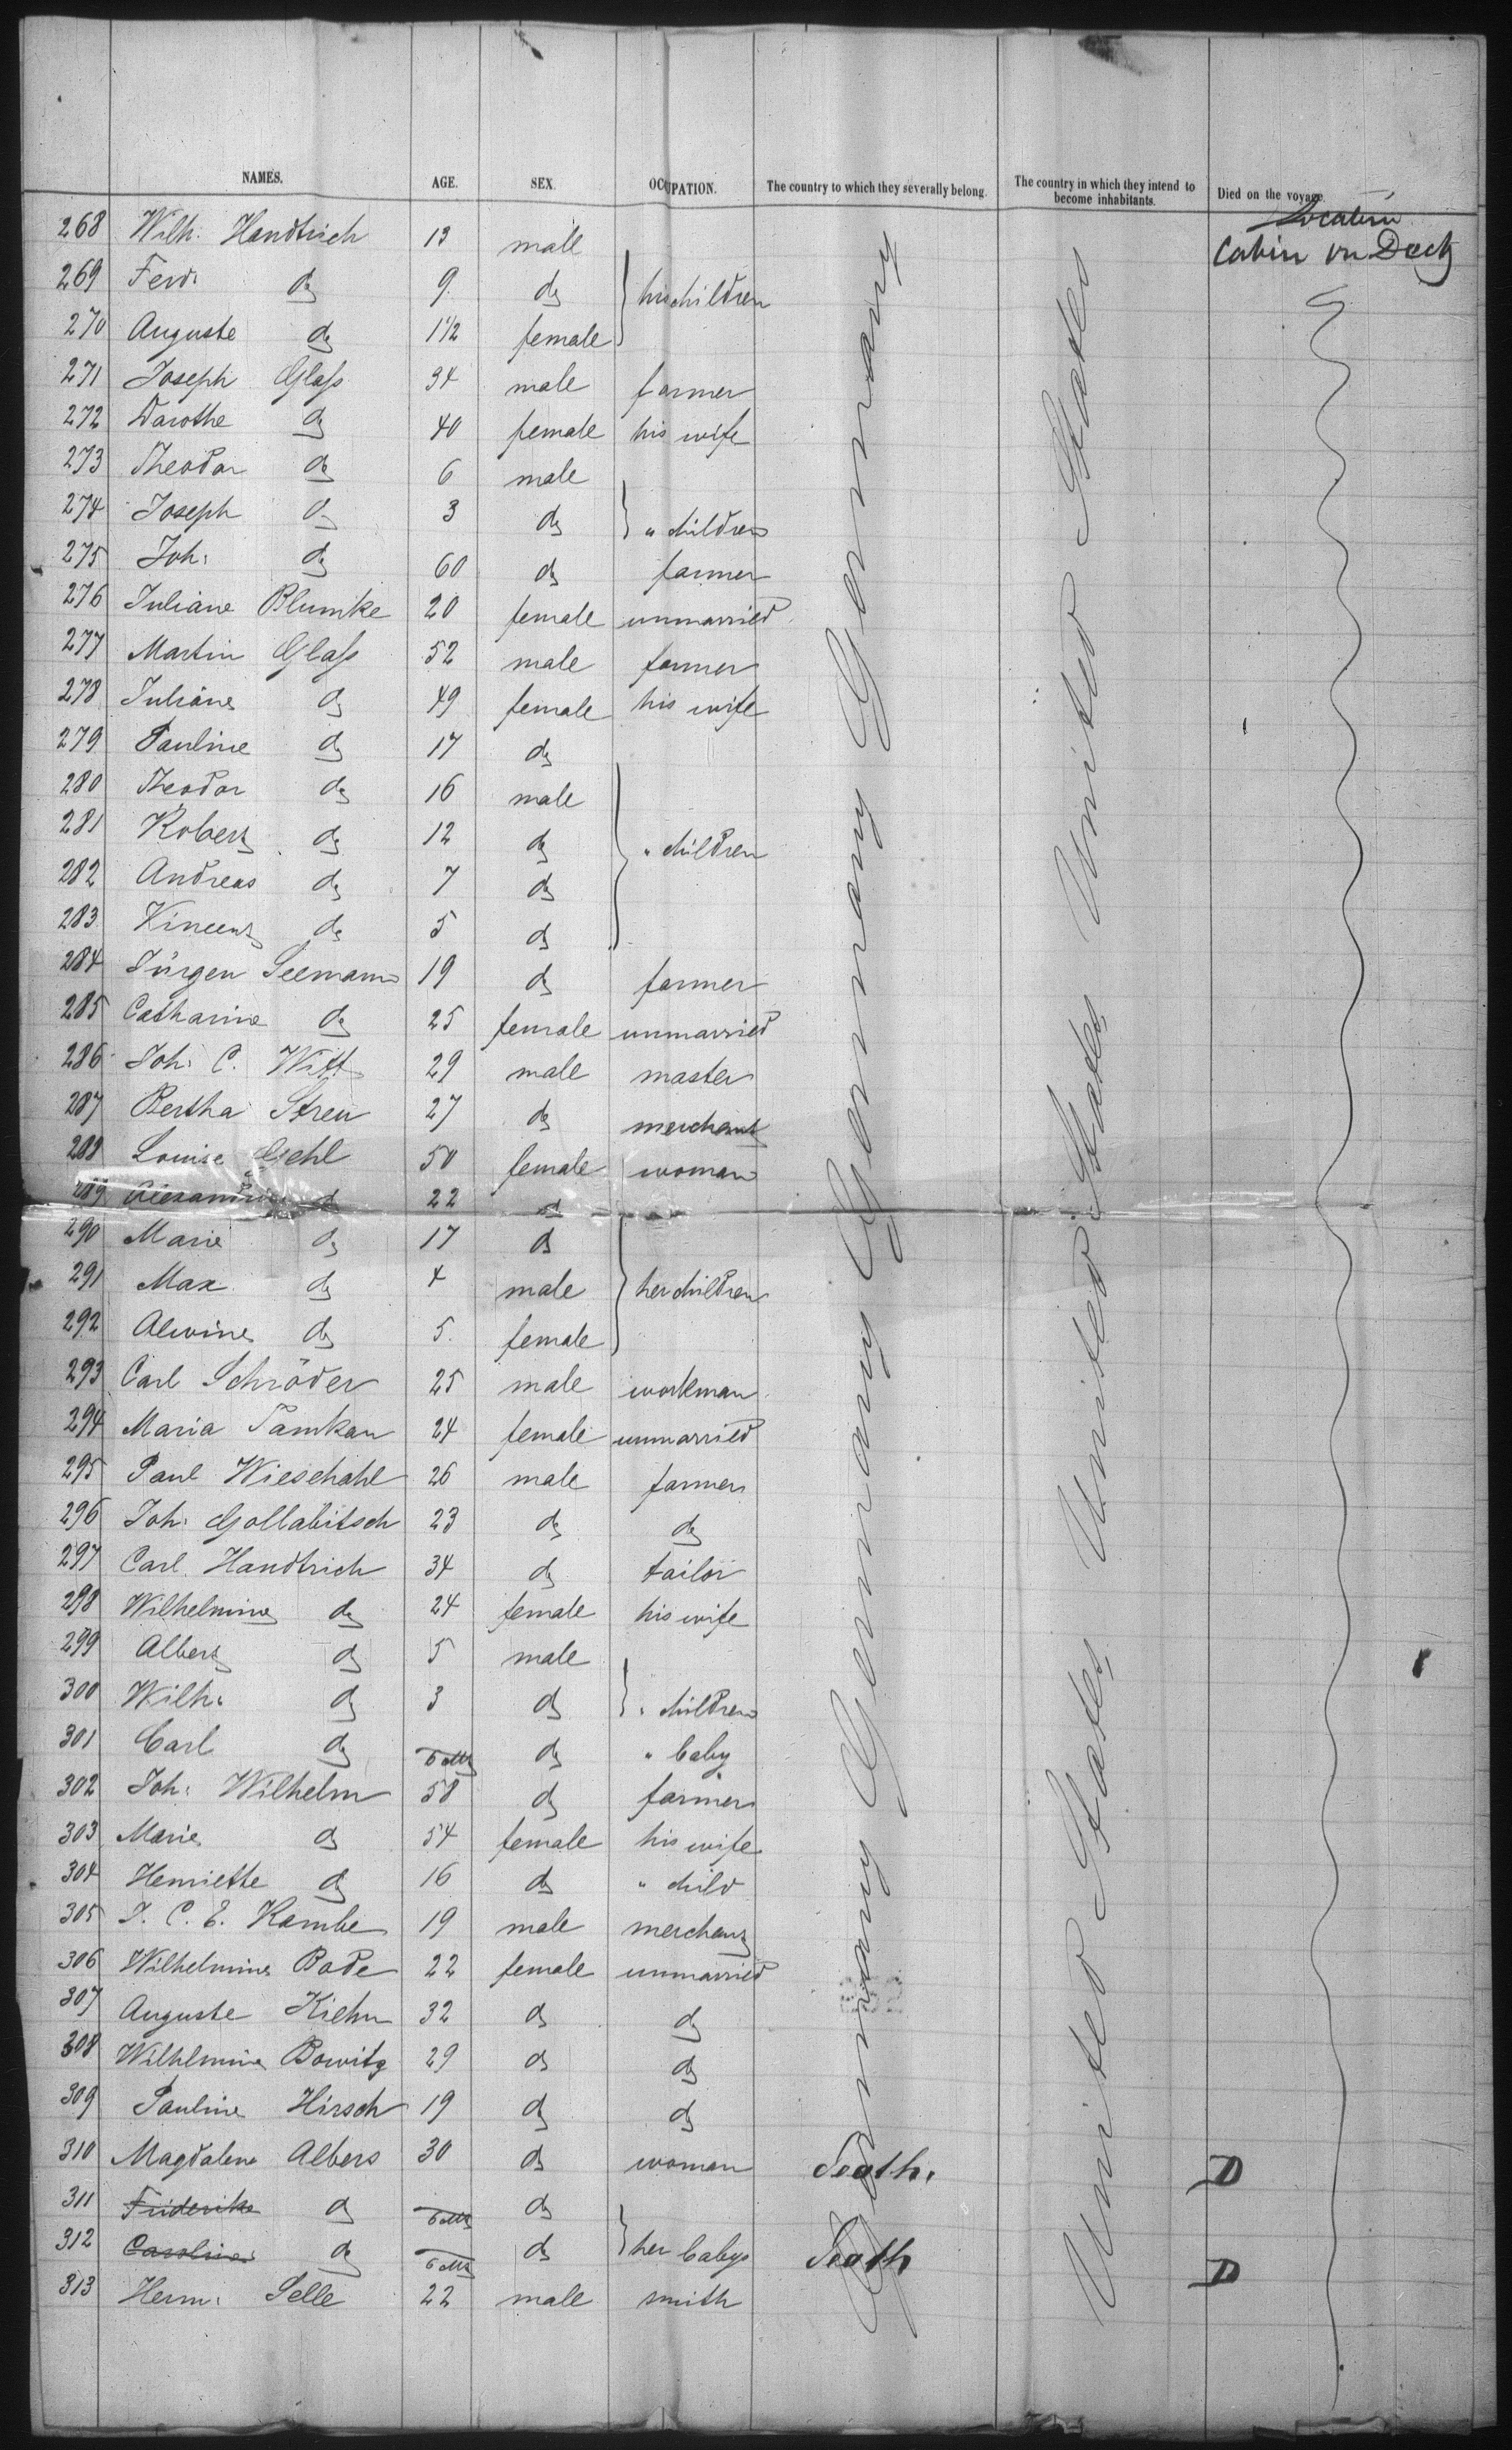 NAMES. AGE. SEX. OCCUPATION. The country to which they severally belong. The country in which they intend to become inhabitants. Died on the voyage.
Location
Cabin on Deck
268 Wilh. Handtrich 13 male
269 Ferd. do 9 do his children
270 Auguste do 1 1/2 female
271 Joseph Glass 34 male farmer
272 Dorothe do 40 female his wife
273 Theodor do 6 male
274 Joseph do 3 do " children
275 Joh. do 60 do farmer
276 Juliane Blumke 20 female unmarried
277 Martin Glass 52 male farmer
278 Juliane do 49 female his wife
279 Pauline do 17 do
280 Theodor do 16 male
281 Robert do 12 do " children
282 Andreas do 7 do
283 Vincent do 5 do
284 Jürgen Seemann 19 do farmer
285 Catharine do 25 female unmarried
286 Joh. C. Witt 29 male master
287 Bertha Streu 27 do merchant
288 Louise Gehl 50 female woman
289 Alexandrine do 22 do
290 Marie do 17 do
291 Max do 4 male her children
292 Alwine do 5 female
293 Carl Schröder 25 male workman
294 Maria Pamkau 24 female unmarried
295 Paul Wieschahl 26 male farmer
296 Joh. Gollabitsch 23 do do
297 Carl Handtrich 34 do tailor
298 Wilhelmine do 24 female his wife
299 Albert do 5 male
300 Wilh. do 3 do " children
301 Carl do 6 Mts do " baby
302 Joh. Wilhelm 58 do farmer
303 Marie do 54 female his wife
304 Henriette do 16 do " child
305 J. C. E. Kambe 19 male merchant
306 Wilhelmine Bode 22 female unmarried
307 Auguste Kiehn 32 do do
308 Wilhelmine Bowitz 29 do do
309 Pauline Hirsch 19 do do
310 Magdalene Albers 30 do woman Death. D
311 Friderike do 6 Mts do
312 Caroline do 6 Mts do her babys Death D
313 Herm. Selle 22 male smith
Germany Germany Germany Germany Germany
United States United States United States United States